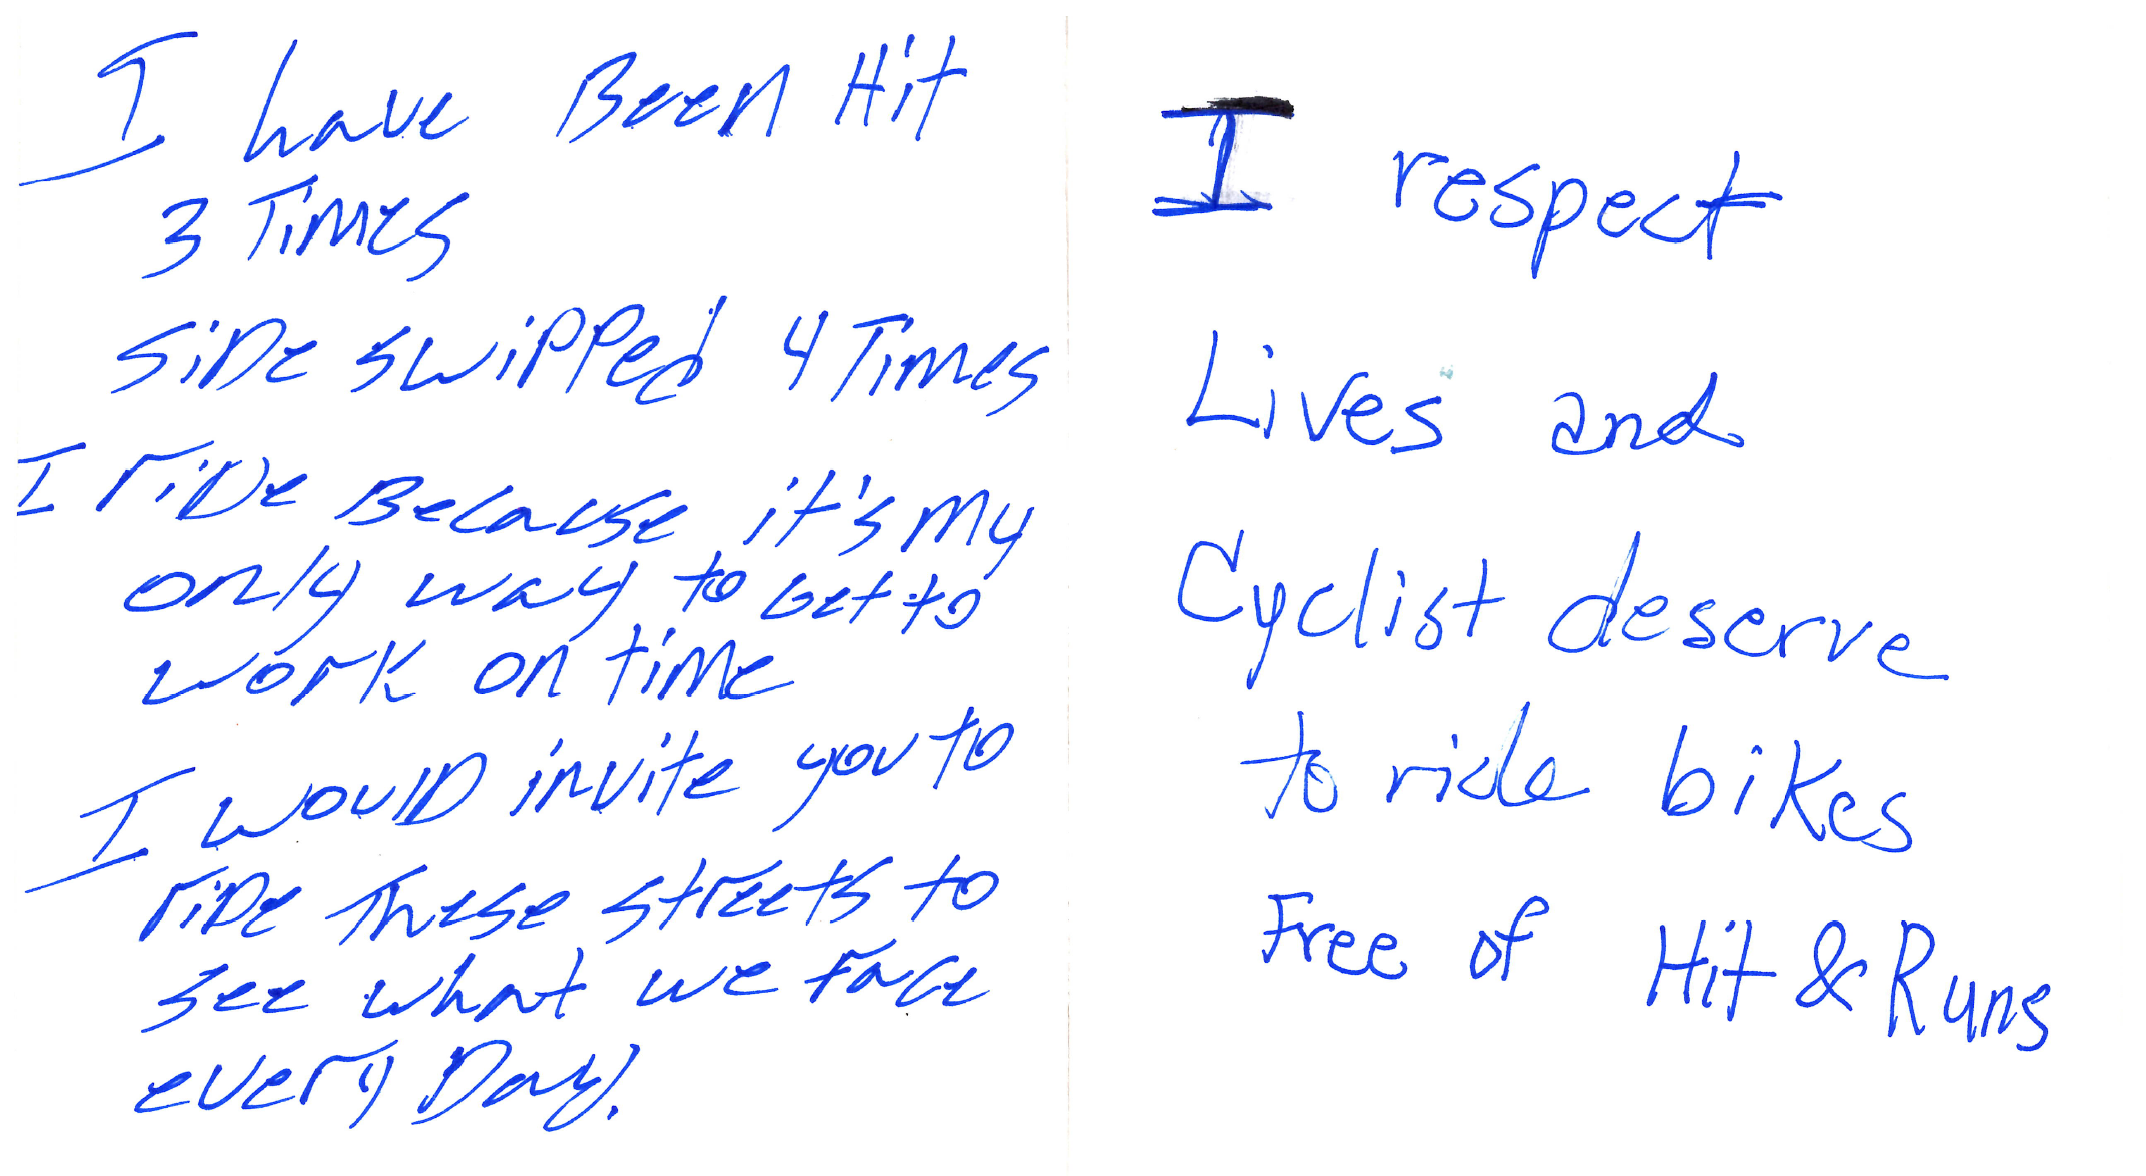 I have Been Hit
3 Times
SiDe swipped 4 Times
I riDe Because it's my
only way to Get to
work on time
I woulD invite you to
riDe These streets to
see what we face
every Day.
I respect
Lives and
Cyclist deserve
to ride bikes
Free of Hit & Runs